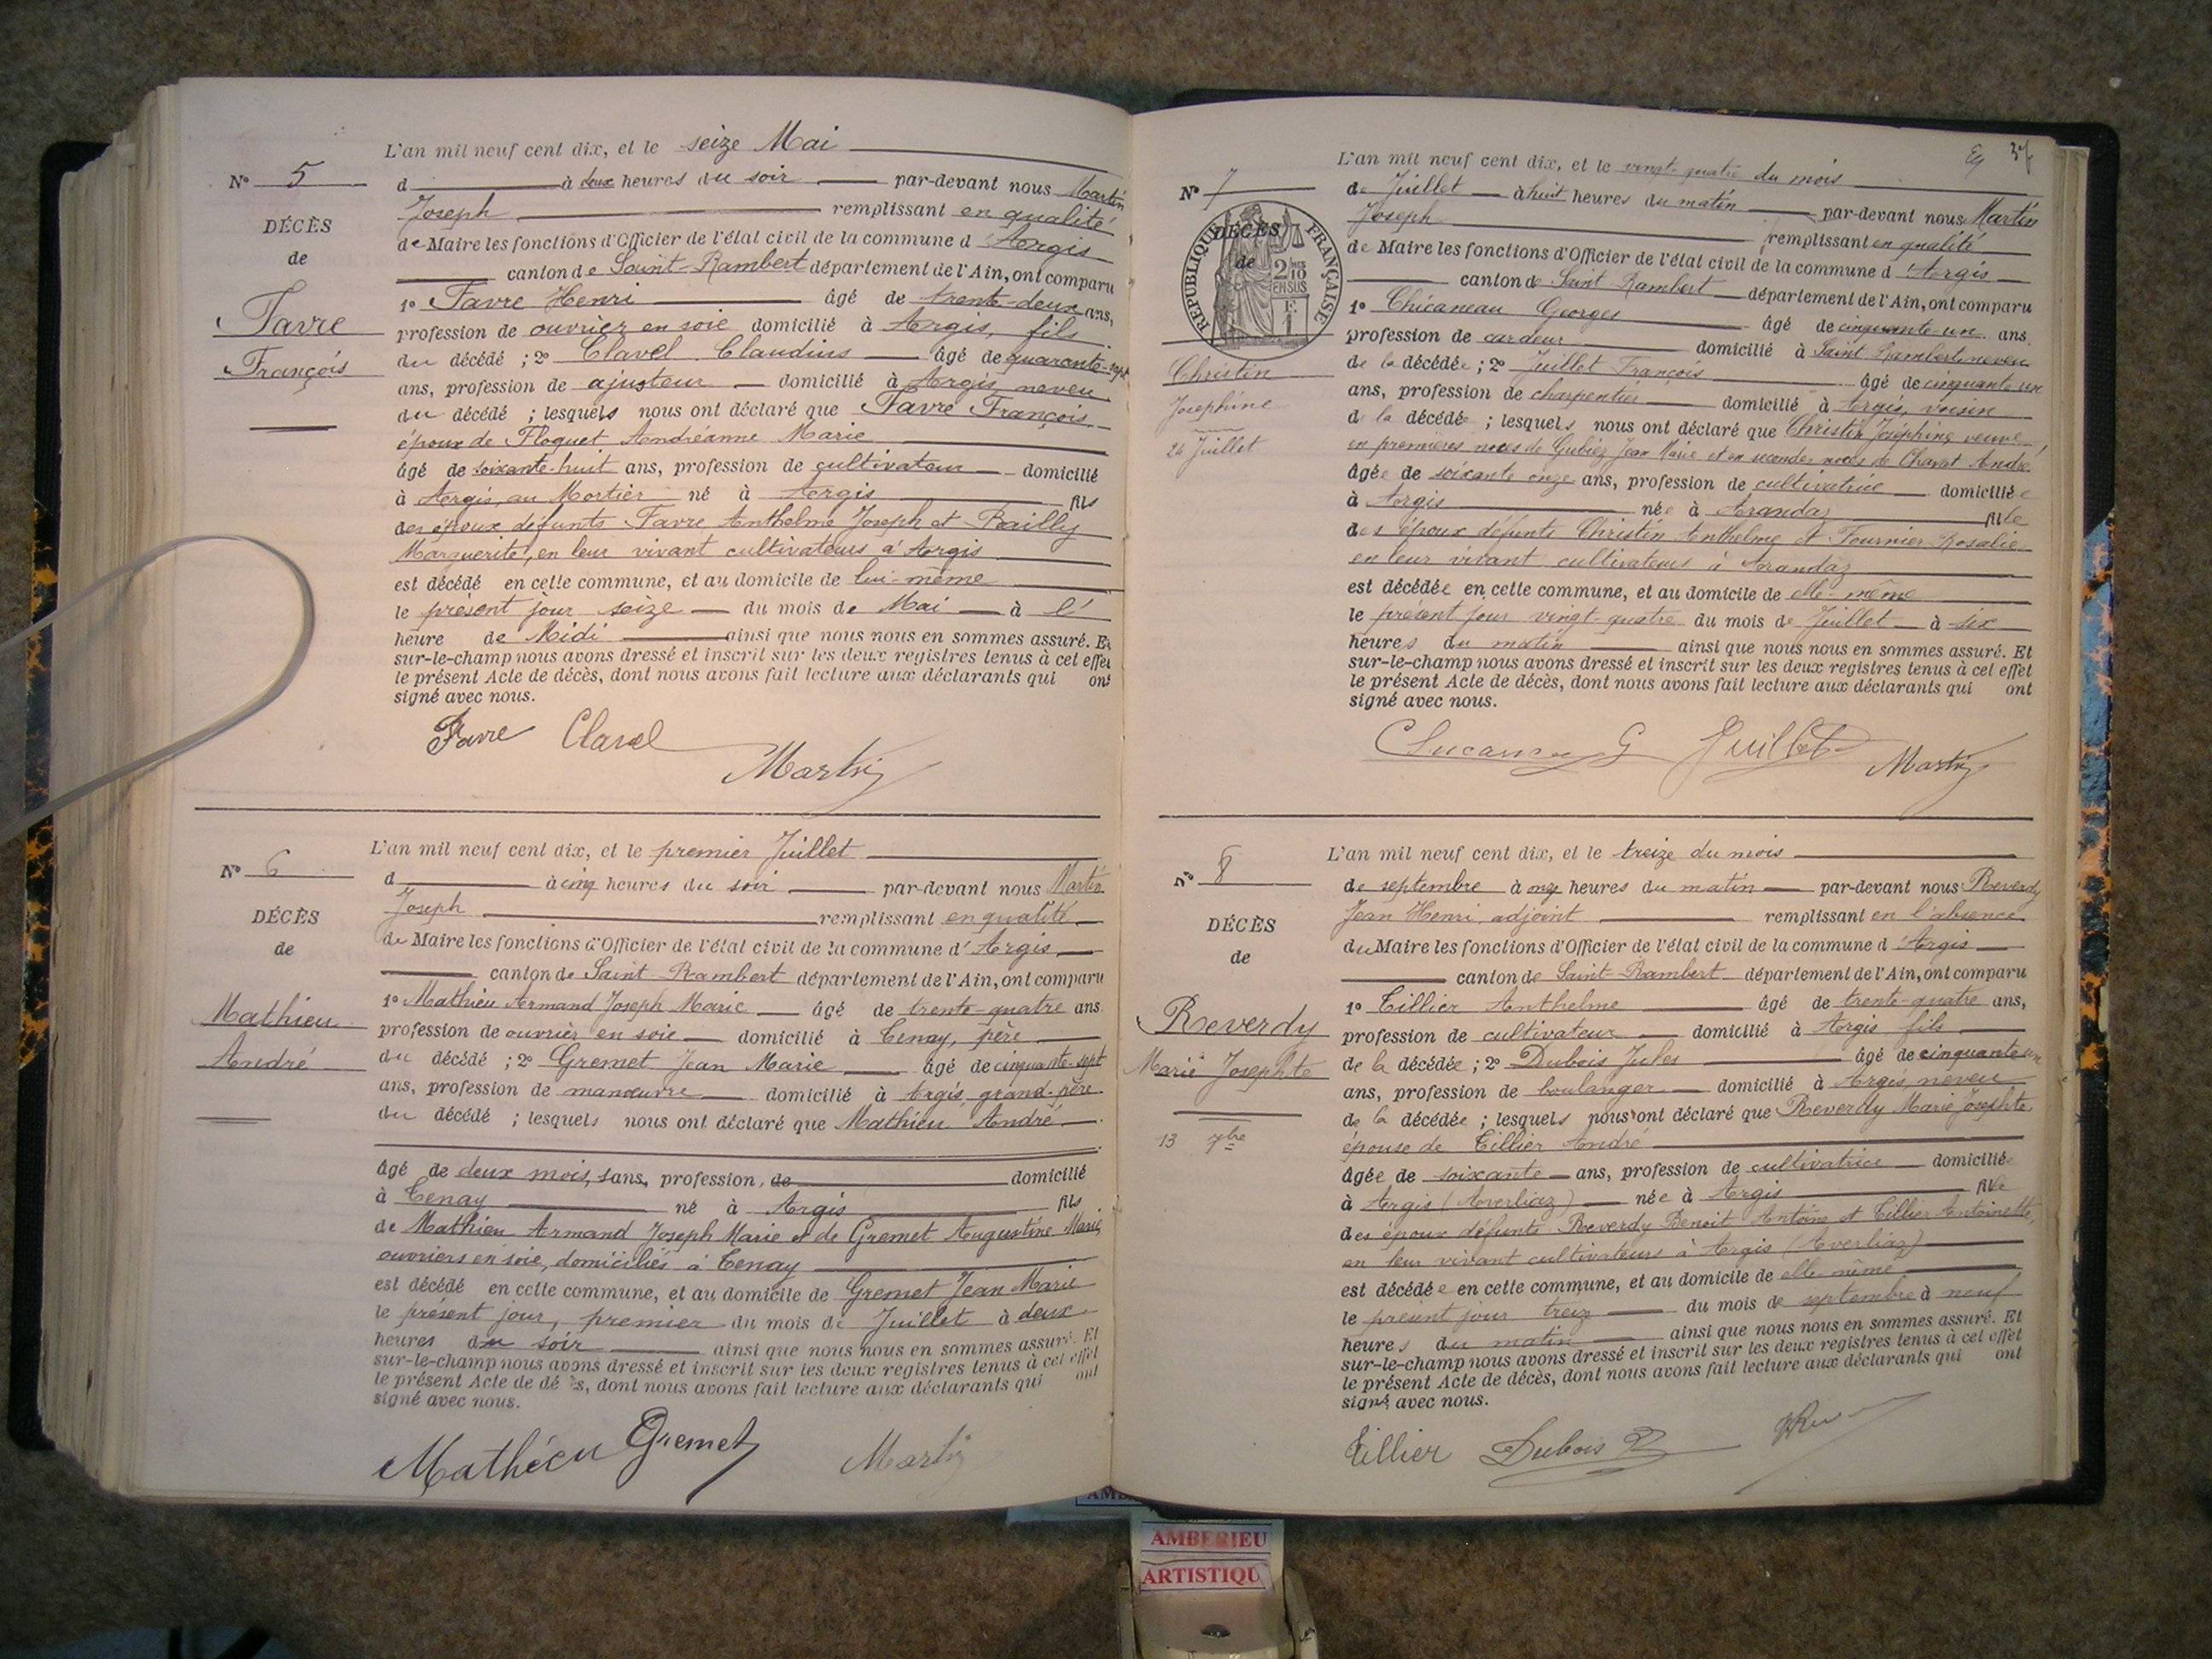 L'an mil neuf cent dix, et le seize Mai
N° 5
d à deux heures du soir par-devant nous Martin
Joseph remplissant en qualité
DÉCÈS
de Maire les fonctions d'Officier de l'état civil de la commune d'Argis
de
canton de Saint-Rambert département de l'Ain, ont comparu
1° Favre Henri âgé de trente-deux ans,
Favre
profession de ouvrier en soie domicilié à Argis, fils
François
du décédé ; 2° Clavel Claudius âgé de quarante-sept
ans, profession de ajusteur domicilié à Argis, neveu
du décédé ; lesquels nous ont déclaré que Favre François
époux de Floquet Andréanne Marie
âgé de soixante-huit ans, profession de cultivateur domicilié
à Argis, au Mortier né à Argis fils
des époux défunts Favre Anthelme Joseph et Bailly
Marguerite, en leur vivant cultivateurs à Argis
est décédé en cette commune, et au domicile de lui-même
le présent jour seize du mois de Mai à l'
heure de Midi ainsi que nous nous en sommes assuré. Et
sur-le-champ nous avons dressé et inscrit sur les deux registres tenus à cet effet
le présent Acte de décès, dont nous avons fait lecture aux déclarants qui ont
signé avec nous.
Favre Clavel
Martin
L'an mil neuf cent dix, et le premier Juillet
N° 6
d à cinq heures du soir par-devant nous Martin
Joseph remplissant en qualité
DÉCÈS
de Maire les fonctions d'Officier de l'état civil de la commune d'Argis
de
canton de Saint Rambert département de l'Ain, ont comparu
1° Mathieu Armand Joseph Marie âgé de trente-quatre ans
Mathieu
profession de ouvrier en soie domicilié à Tenay, père
André
du décédé ; 2° Gremet Jean Marie âgé de cinquante-sept
ans, profession de manœuvre domicilié à Argis, grand-père
du décédé ; lesquels nous ont déclaré que Mathieu André
âgé de deux mois, sans profession, de domicilié
à Tenay né à Argis fils
de Mathieu Armand Joseph Marie et de Gremet Augustine Marie
ouvriers en soie, domiciliés à Tenay
est décédé en cette commune, et au domicile de Gremet Jean Marie
le présent jour, premier du mois de Juillet à deux
heures du soir ainsi que nous nous en sommes assuré. Et
sur-le-champ nous avons dressé et inscrit sur les deux registres tenus à cet effet
le présent Acte de décès, dont nous avons fait lecture aux déclarants qui ont
signé avec nous.
Mathieu Gremet Martin
L'an mil neuf cent dix, et le vingt-quatre du mois
N° 7
de Juillet à huit heures du matin par-devant nous Martin
Joseph remplissant en qualité
DÉCÈS
de
RÉPUBLIQUE FRANÇAISE
2/10
EN SUS
de Maire les fonctions d'Officier de l'état civil de la commune d'Argis
canton de Saint Rambert département de l'Ain, ont comparu
1° Chicaneau Georges âgé de cinquante-un ans
profession de cardeur domicilié à Saint Rambert, neveu
Christin
de la décédée ; 2° Juillet François âgé de cinquante un
Joséphine
ans, profession de charpentier domicilié à Argis, voisin
24 Juillet
de la décédée ; lesquels nous ont déclaré que Christin Joséphine, veuve
en premières noces de Jean Marie et en secondes noces de Charvet André
âgée de soixante onze ans, profession de cultivatrice domiciliée
à Argis née à Arandaz fille
des époux défunts Christin Anthelme et Fournier Rosalie
en leur vivant cultivateurs à Arandaz
est décédée en cette commune, et au domicile de elle-même
le présent jour vingt-quatre du mois de Juillet à six
heures du matin ainsi que nous nous en sommes assuré. Et
sur-le-champ nous avons dressé et inscrit sur les deux registres tenus à cet effet
le présent Acte de décès, dont nous avons fait lecture aux déclarants qui ont
signé avec nous.
G Juillet Martin
L'an mil neuf cent dix, et le treize du mois
N° 8
de septembre à onze heures du matin par-devant nous Reverdy
Jean Henri, adjoint remplissant en l'absence
DÉCÈS
du Maire les fonctions d'Officier de l'état civil de la commune d'Argis
de
canton de Saint-Rambert département de l'Ain, ont comparu
1° Tillier Anthelme âgé de trente-quatre ans,
Reverdy
profession de cultivateur domicilié à Argis fils
Marie Josephte
de la décédée ; 2° Dubois Jules âgé de cinquante un
ans, profession de boulanger domicilié à Argis, neveu
de la décédée ; lesquels nous ont déclaré que Reverdy Marie Josephte
13 7bre
épouse de Tillier André
âgée de soixante ans, profession de cultivatrice domiciliée
à Argis (Averliaz) née à Argis fille
des époux défunts Reverdy Benoit Antoine et Tillier Antoinette,
en leur vivant cultivateurs à Argis (Averliaz)
est décédée en cette commune, et au domicile de elle-même
le présent jour treize du mois de septembre à neuf
heures du matin ainsi que nous nous en sommes assuré. Et
sur-le-champ nous avons dressé et inscrit sur les deux registres tenus à cet effet
le présent Acte de décès, dont nous avons fait lecture aux déclarants qui ont
signé avec nous.
Tillier Dubois
AMBERIEU
ARTISTIQU